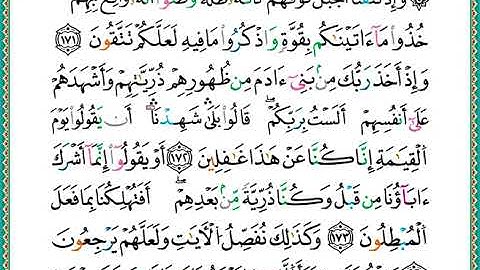 وَإِذْ نَتَقْنَا الْجَبَلَ فَوْقَهُمْ كَأَنَّهُ ظُلَّةٌ وَظَنُّوا أَنَّهُ وَاقِعٌ بِهِمْ
خُذُوا۟ مَآ ءَاتَيْنَٰكُم بِقُوَّةٍ وَٱذْكُرُوا۟ مَا فِيهِ لَعَلَّكُمْ تَتَّقُونَ ١٧١
وَإِذْ أَخَذَ رَبُّكَ مِنۢ بَنِىٓ ءَادَمَ مِن ظُهُورِهِمْ ذُرِّيَّتَهُمْ وَأَشْهَدَهُمْ
عَلَىٰٓ أَنفُسِهِمْ أَلَسْتُ بِرَبِّكُمْ ۖ قَالُوا۟ بَلَىٰ ۛ شَهِدْنَآ ۛ أَن يَقُولُوا۟ يَوْمَ
ٱلْقِيَٰمَةِ إِنَّا كُنَّا عَنْ هَٰذَا غَٰفِلِينَ ١٧٢ أَوْ يَقُولُوٓا۟ إِنَّمَآ أَشْرَكَ
ءَابَآؤُنَا مِن قَبْلُ وَكُنَّا ذُرِّيَّةً مِّنۢ بَعْدِهِمْ ۖ أَفَتُهْلِكُنَا بِمَا فَعَلَ
ٱلْمُبْطِلُونَ ١٧٣ وَكَذَٰلِكَ نُفَصِّلُ ٱلْءَايَٰتِ وَلَعَلَّهُمْ يَرْجِعُونَ